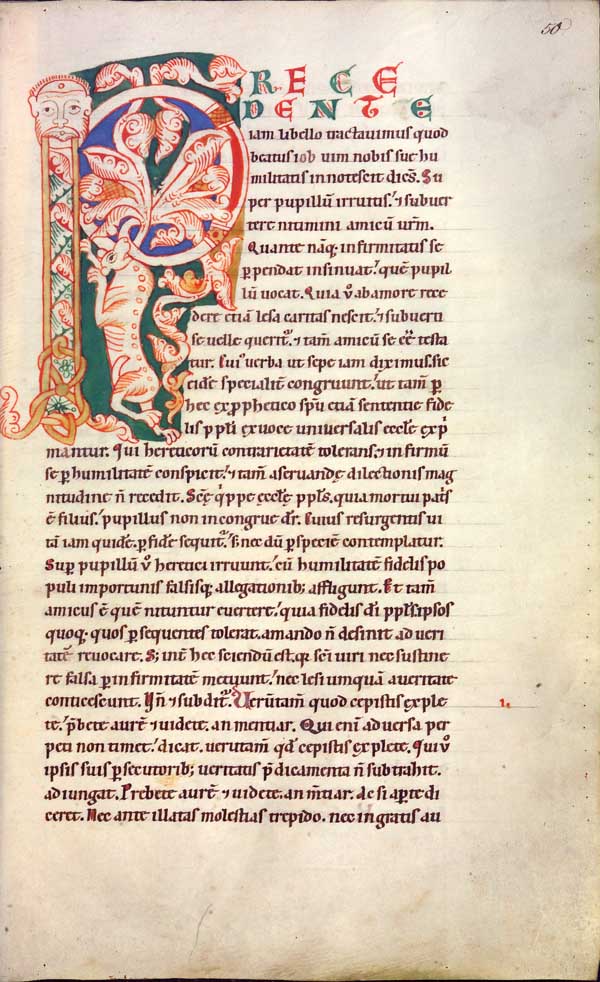 50
PRECE
DENTE
iam libello tractavimus quod
beatus iob vim nobis sue hu
militatis innotescit dicēs. Su
per pupillū irruitis. ⁊ subuer
tere nitimini amicū ur̄m.
Quante nāq; infirmitatis se
ꝑpendat insinuat. quē pupil
lū uocat. Quia v̊ ab amore rece
dere etiā lesa caritas nescit. ⁊ subuerti
se uelle querit᷑. ⁊ tam̄ amicū se eē testa
tur. Cui᷒ verba ut sepe iam diximus. sic
ei dē specialit̄ congruunt. ut tam̄ ꝑ
hec ex ꝓphetico sp̄u etiā sententie fide
lis ppl̄i ex uoce uniuersalis eccl̄e exp̄
mantur. Qui hereticorū contrarietatē tolerans. ⁊ infirmū
se ꝑ humilitatē conspicit. ⁊ tam̄ a seruandę dilectionis mag
nitudine n̄ recedit. Scę̄ q̇ppe ęccl̄ę ppl̄s. quia mortui patris
ē filius. pupillus non incongrue dr̄. Cuius resurgentis ui
tā iam quidē. ꝑ fidē sequit᷑. s; nec dū ꝑ speciē contemplatur.
Suꝑ pupillū v̊ heretici irruunt. cū humilitatē fidelis po
puli importunis falsisq; allegationib; affligunt. Et tam̄
amicus ē quē nituntur euertere. quia fidelis dī ppl̄s. ipsos
quoq; quos ꝑsequentes tolerat. amando n̄ desinit ad ueri
tatē reuocare. S; int̄ hec sciendū est. q; sc̄i uiri nec sustine
re falsa ꝑ infirmitatē metuunt. nec lesi umquā a ueritate
conticescunt. Vn̄ ⁊ subdit᷑. Verūtam̄ quod cepistis exple
te. p̄bete aurē ⁊ uidete. an mentiar. Qui eni aduersa per
peti non timet. dicat. verutam̄ qd̄ cepistis explete. Qui v̊
ipsis suis ꝑsecutorib; ueritatis p̄dicamenta n̄ subtrahit.
adiungat. Prebete aurē ⁊ uidete. an m̄tiar. ac si aꝑte di
ceret. Nec ante illatas molestias trepido. nec ingratis au